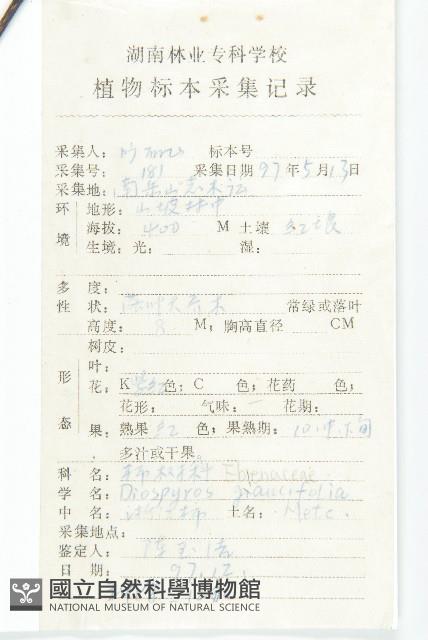 湖南林业专科学校
植物标本采集记录
采集人： 标本号
采集号：181 采集日期97年5月13日
采集地：南岳山
环境
地形：山坡林中
海拔：400 M 土壤 红壤
生境：光： 湿：
多度：
性状：落叶大乔木 常绿或落叶
高度：8 M；胸高直径 CM
形态
树皮：
叶：
花：K 色；C 色；花药 色；
花形： 气味：一 花期：
果：熟果红色；果熟期：10
多汁或干果。
科名：柿树科 Ebenaceae
学名：Diospyros glaucifolia
中名：浙江柿 土名： Metc.
采集地点：
鉴定人：
日期：97.12.
國立自然科學博物館
NATIONAL MUSEUM OF NATURAL SCIENCE